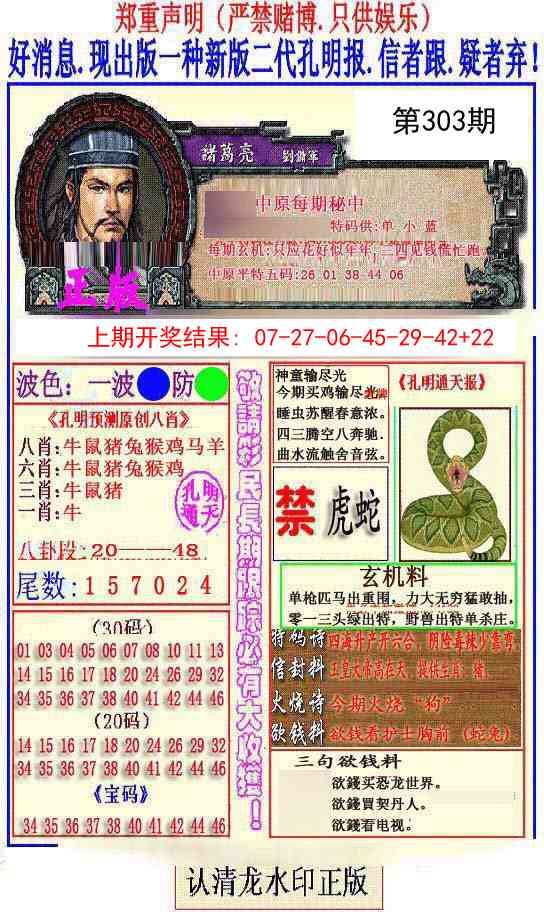 郑重声明（严禁赌博.只供娱乐）
好消息.现出版一种新版二代孔明报.信者跟.疑者弃!
第303期
諸葛亮 劉備軍
中原每期秘中
特码供:单 小 蓝
每期玄机:只应花好似年年,二四见钱慌忙跑.
中原平特五码:26 01 38 44 06
正版
上期开奖结果: 07-27-06-45-29-42+22
波色: 一波 防
《孔明预测原创八肖》
八肖:牛鼠猪兔猴鸡马羊
六肖:牛鼠猪兔猴鸡
三肖:牛鼠猪
一肖:牛
孔明通天
八卦段:20——48
尾数:157024
(30码)
01 03 04 05 06 07 08 10 11 13
14 15 16 17 18 20 24 26 29 32
34 35 36 37 38 40 41 42 44 46
(20码)
14 15 16 17 18 20 24 26 29 32
34 35 36 37 38 40 41 42 44 46
《宝码》
34 35 36 37 38 40 41 42 44 46
敬請彩民長期跟踪必有大收獲!
神童输尽光
今期买鸡输尽光
睡虫苏醒春意浓。
四三腾空八奔驰.
曲水流触舍音弦。
《孔明通天报》
禁 虎蛇
玄机料
单枪匹马出重围, 力大无穷猛敢抽,
零一三头绿出特, 野兽出特单杀庄。
特码诗 四海升产开六合, 阴险毒辣少靠弯
信封料 玉皇大帝高在天, 提供生肖: 猪.
火烧诗 今期火烧“狗”
欲钱料 欲钱看护士胸前 (蛇兔)
三句欲钱料
欲錢买恐龙世界。
欲錢買契丹人。
欲錢看电视。
认清龙水印正版